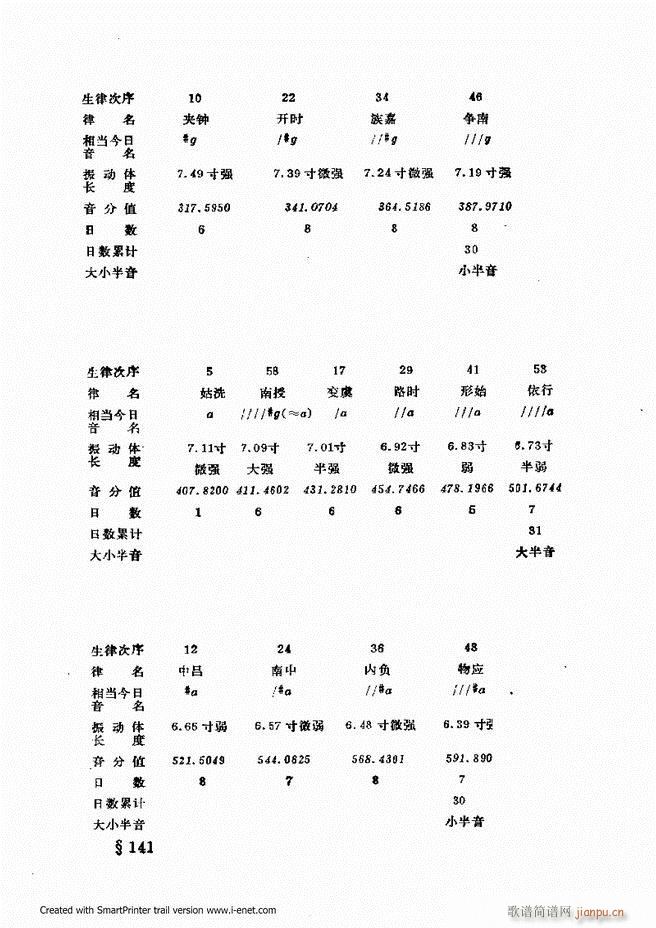 生律次序 10 22 34 46
律 名 夹钟 开时 族嘉 争南
相当今日 #g /#g //#g ///g
音 名
振 动 体 7.49寸强 7.39寸微强 7.24寸微强 7.19寸强
长 度
音 分 值 317.5950 341.0704 364.5186 387.9710
日 数 6 8 8 8
日数累计 30
大小半音 小半音
生律次序 5 58 17 29 41 53
律 名 姑洗 南授 变虞 路时 形始 依行
相当今日 a ////#g(≈a) /a //a ///a ////a
音 名
振 动 体 7.11寸 7.09寸 7.01寸 6.92寸 6.83寸 6.73寸
长 度 微强 大强 半强 微强 弱 半弱
音 分 值 407.8200 411.4602 431.2810 454.7466 478.1966 501.6744
日 数 1 6 6 6 5 7
日数累计 31
大小半音 大半音
生律次序 12 24 36 48
律 名 中吕 南中 内负 物应
相当今日 #a /#a //#a ///#a
音 名
振 动 体 6.66寸弱 6.57寸微弱 6.48寸微强 6.39寸
长 度
音 分 值 521.5049 544.0825 568.4301 591.890
日 数 8 7 8 7
日数累计 30
大小半音 小半音
§141
Created with SmartPrinter trail version www.i-enet.com
歌谱简谱网 jianpu.cn